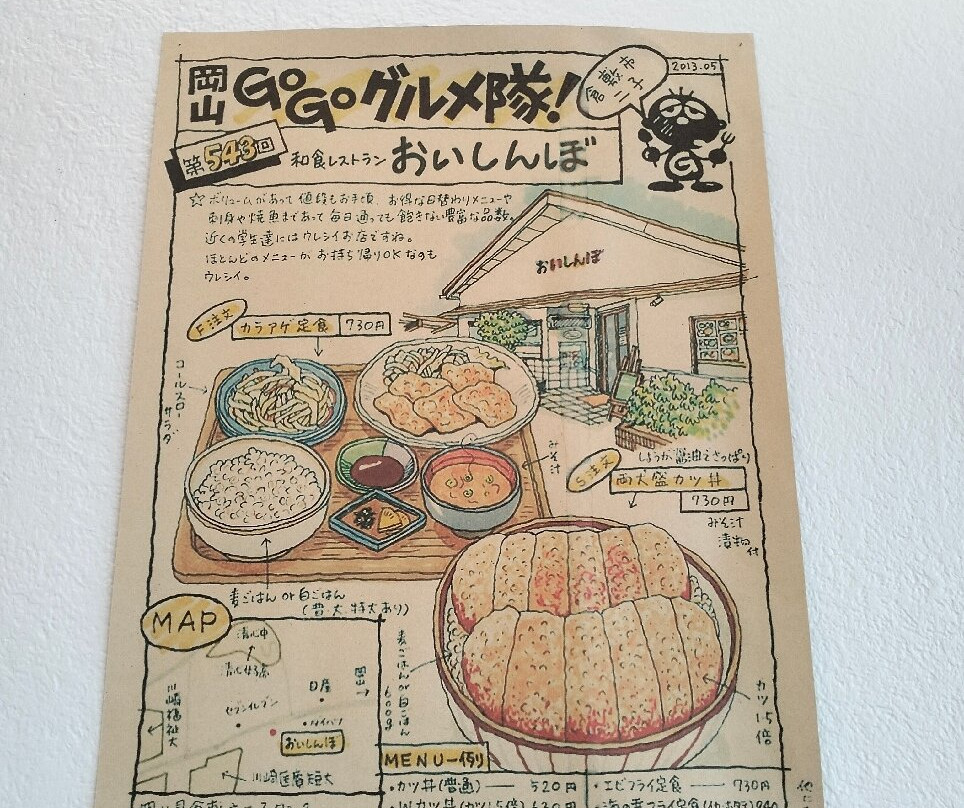 岡山 GOGOグルメ隊!
倉敷市
二子
2013.05
G
第543回
和食レストラン おいしんぼ
☆ボリュームがあって値段もお手頃、お得な日替わりメニューや
刺身や焼魚まであって毎日通っても飽きない豊富な品数。
近くの学生達にはウレシイお店ですね。
ほとんどのメニューがお持ち帰りOKなのも
ウレシイ。
おいしんぼ
F注文
カラアゲ定食 730円
コールスロー
サラダ
みそ汁
しょうが醤油でさっぱり
S注文
両大盛カツ丼
730円
みそ汁
漬物付
麦ごはん or 白ごはん
(普・大・特大あり)
麦ごはん or 白ごはん
600g
カツ1.5倍
MAP
清心中
清心女子高
川崎福祉大
日産
岡山↑
セブンイレブン
ダイハツ
おいしんぼ
川崎医療短大
MENU一例
・カツ丼(普通) 520円
・エビフライ定食 730円